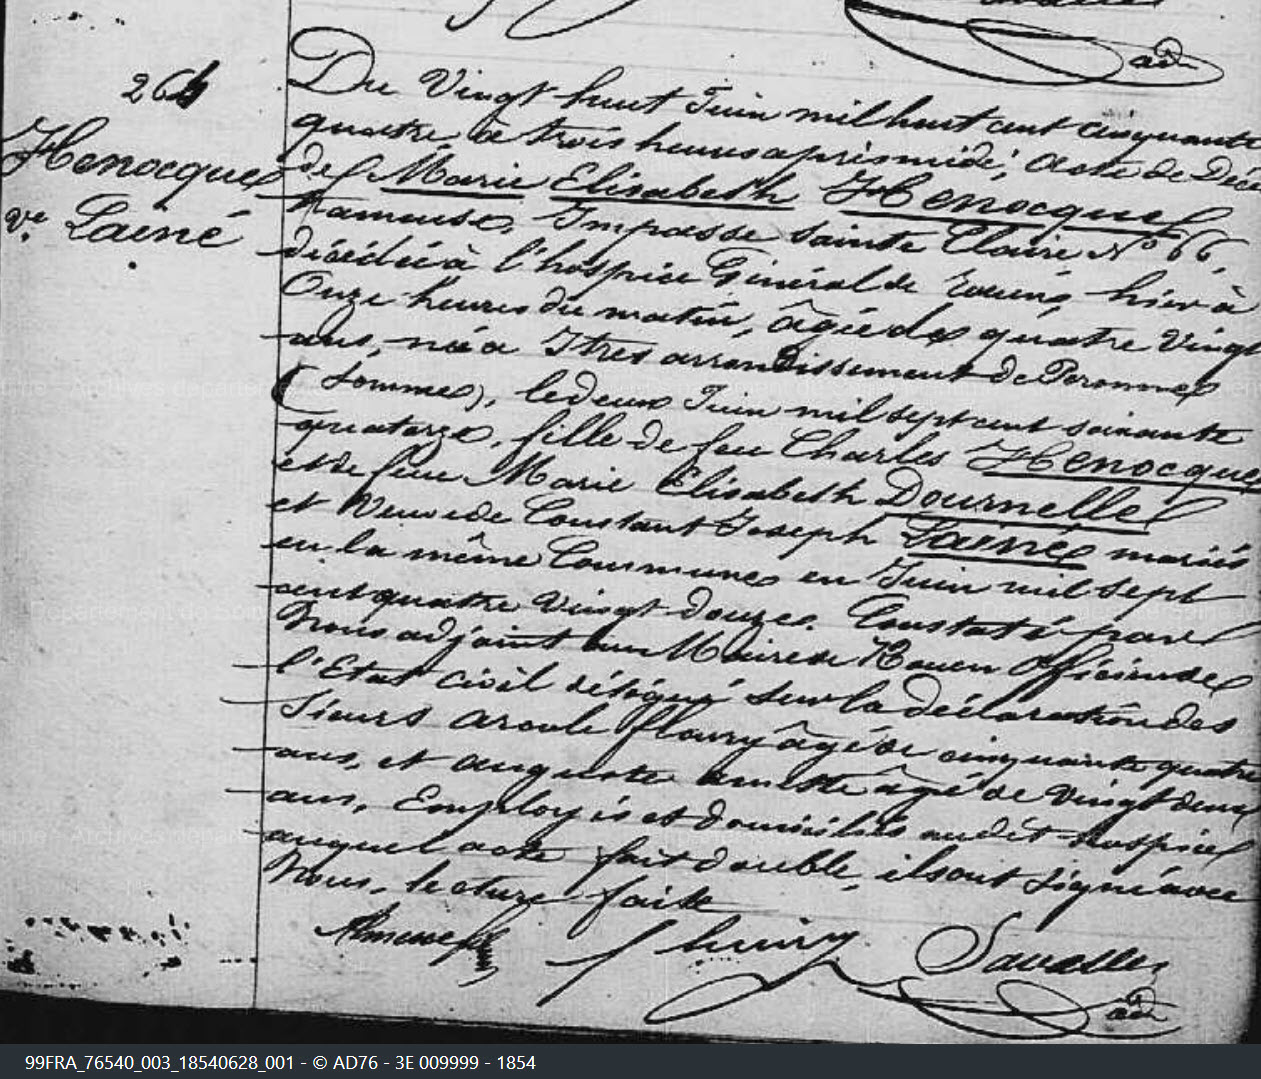 264
Henocque
ve. Lainé
Du Vingt huit Juin mil huit cent cinquante
quatre à trois heures après midi, acte de Décè
de Marie Elisabeth Henocque
Rameuse, Impasse Sainte Claire No 66,
décédée à l'hospice Général de Rouen, hier à
Onze heures du matin, âgée de quatre Vingt
ans, née à Itres arrondissement de Peronne
(Somme), le deux Juin mil sept cent soixante
quatorze, fille de feu Charles Henocque
et de feue Marie Elisabeth Dournelle
et Veuve de Constant Joseph Lainé mariés
en la même Commune en Juin mil sept
cent quatre Vingt douze. Constaté par
Nous adjoint au Maire de Rouen Officier de
l'Etat civil délégué sur la déclaration des
Sieurs fleury âgé de cinquante quatre
ans, et auguste âgé de Vingt deux
ans, Employés et domiciliés audit hospice
auquel acte fait double, ils ont signé avec
Nous, lecture faite
fleury
adt
99FRA_76540_003_18540628_001 - © AD76 - 3E 009999 - 1854